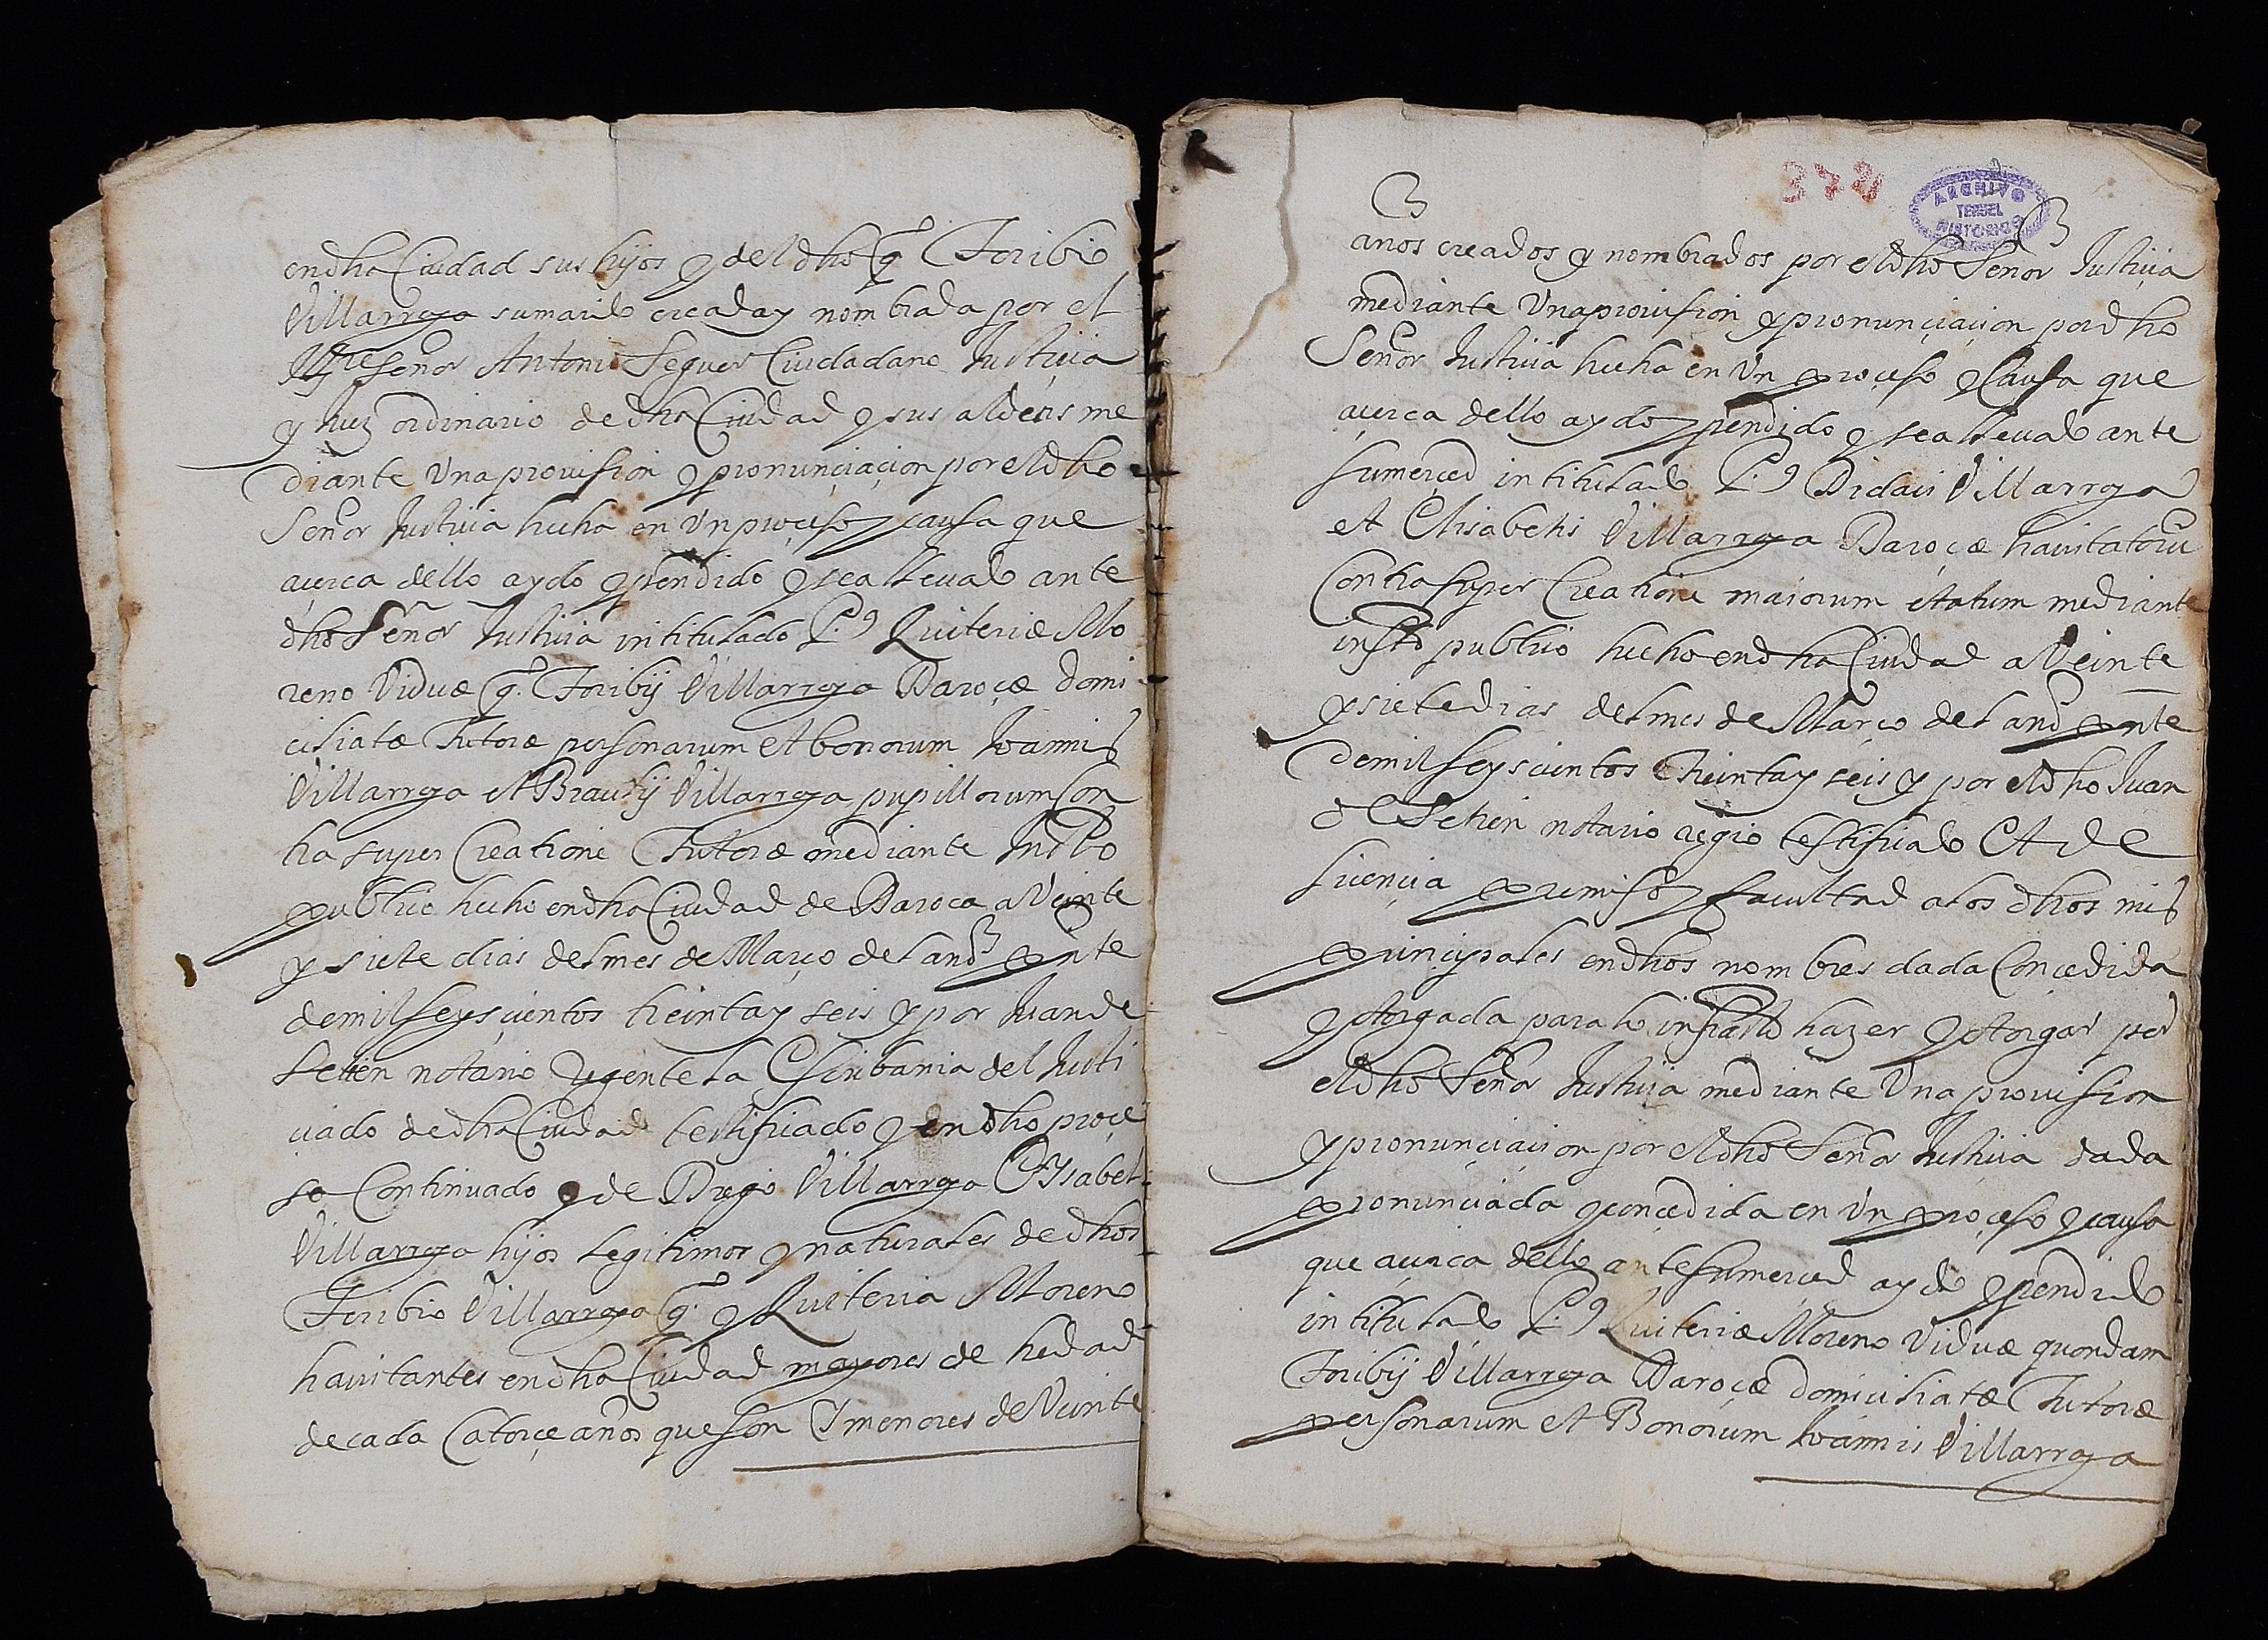 endha Ciudad sus hijos y del dho qº Toribio
Villarroya su marido creada y nombrada por el
Illre señor Antonio Seguer Ciudadano Justicia
y Juez ordinario de dha Ciudad y sus aldeas me
diante Una provission y pronunciacion por el dho
Señor Justicia hecha en Un proceso y causa que
acerca dello aydo y pendido y sea llevado ante
dho Señor Justicia intitulado P.º Quiteriæ Mo
reno Viduæ q.º Toribij Villarroya Darocæ domi
ciliatæ Tutoræ personarum et bonorum Joannis
Villarroya et Braulij Villarroya pupillorum Con
tra super Creatione Tutoræ mediante Instto
publico hecho endha Ciudad de Daroca a Veinte
y siete dias del mes de Março del anõ pnte
de mil seyscientos treinta y seis y por Juan de
Setien notario Regente la Escribania del Justi
ciado de dha Ciudad testificado y en dho proce
so Continuado y de Diego Villarroya E Ysabel
Villarroya hijos legitimos y naturales de dhos
Toribio Villarroya q.º y Quiteria Moreno
havitantes en dha Ciudad mayores de hedad
de cada Catorçe años que son Y menores de Veinte
378
ARCHIVO
TERUEL
HISTORICO
años creados y nombrados por el dho Señor Justicia
mediante Una provission y pronunciacion por dho
Señor Justicia hecha en Un proceso y Causa que
acerca dello aydo y pendido y sea llevado ante
su merced intitulado P.º Didaci Villarroya
et Elisabetis Villarroya Darocæ havitatoru
Contra super Creatione maiorum etatum mediante
instto publico hecho en dha Ciudad a Veinte
y siete dias del mes de Março del anõ pnte
de mil seyscientos treinta y seis y por el dho Juan
de Setien notario regio testificado Et de
licencia permisso y facultad a los dhos mis
principales en dhos nombres dada Concedida
y otorgada para lo infrasto hazer y otorgar por
el dho Señor Justicia mediante Una provission
y pronunciacion por el dho Señor Justicia dada
pronunciada y concedida en Un proceso y causa
que acerca dello ante su merced aydo y pendido
intitulado P.º Quiteriæ Moreno Viduæ quondam
Toribij Villarroya Darocæ domiciliatæ Tutoræ
personarum et Bonorum Joannis Villarroya